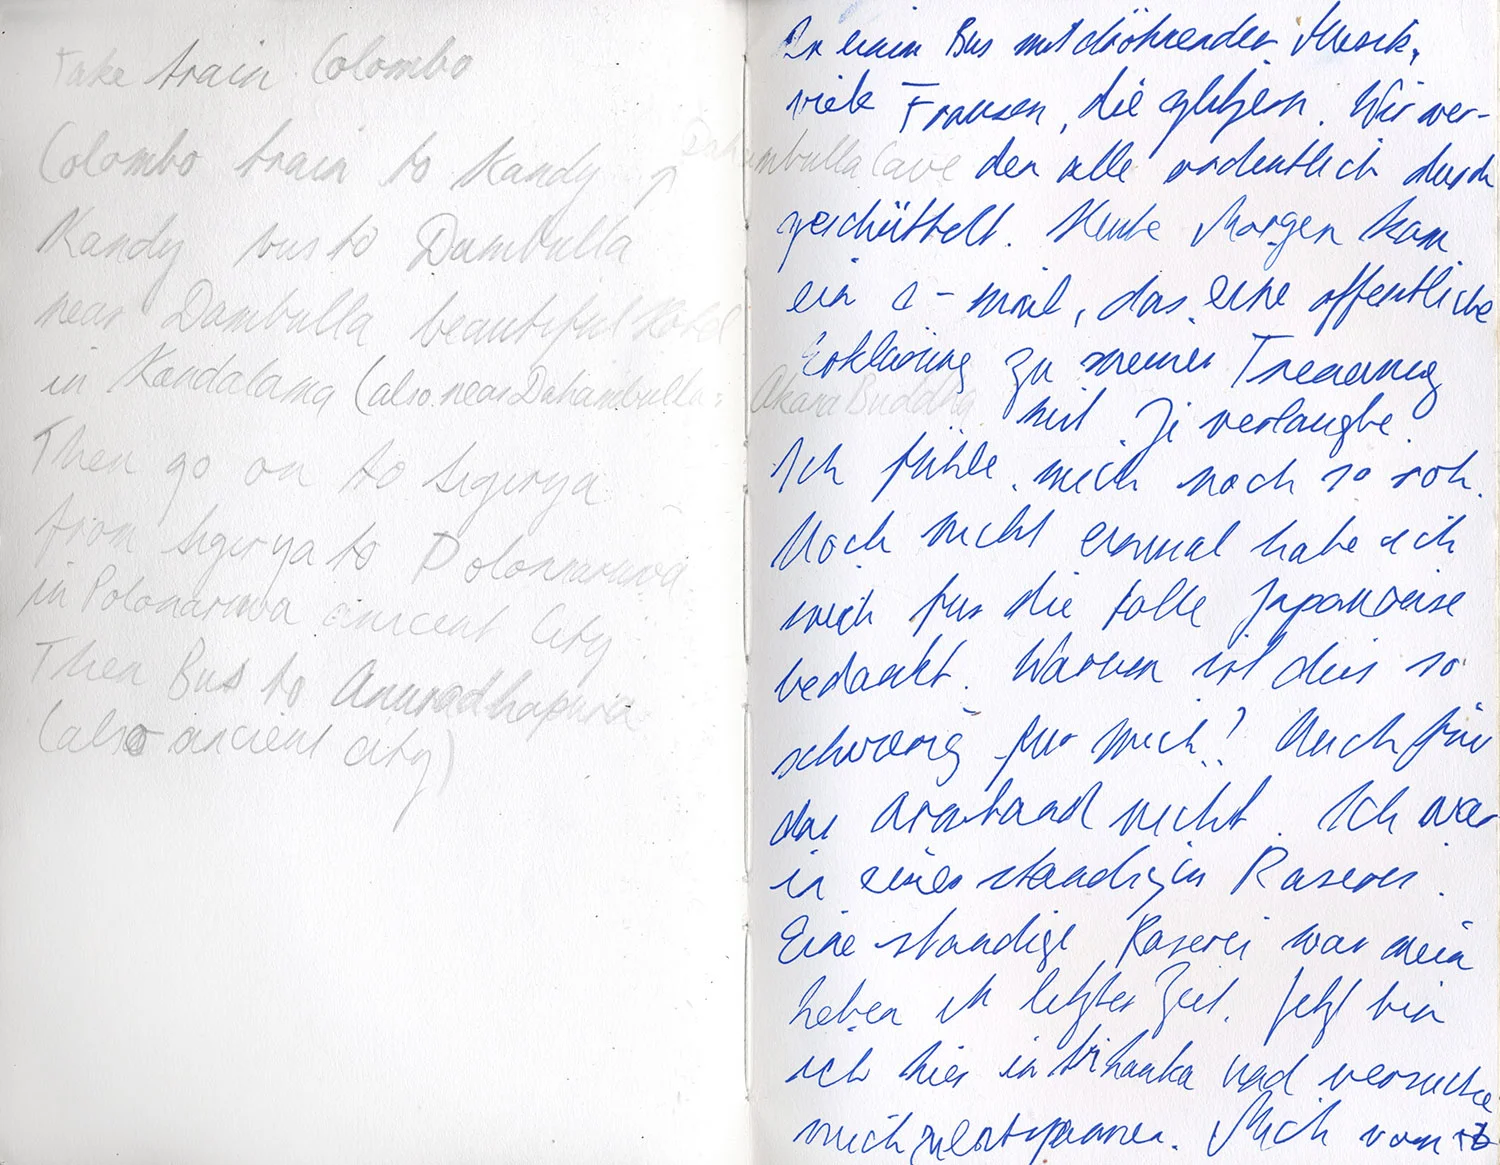 Take train Colombo
Colombo train to Kandy
Kandy bus to Dambulla
near Dambulla beautiful Hotel
in Kandalama (also near Dahambulla
Then go on to Sigirya
from Sigirya to Polonnaruwa
in Polonaruwa ancient City
Then Bus to Anuradhapura
(also ancient city)
Dahambulla Cave
Akana Buddha
In einem Bus mit dröhnender Musik,
viele Fransen, die glitzern. Wir wer-
den alle ordentlich durch
geschüttelt. Heute Morgen kam
ein e-mail, das eine öffentliche
Erklärung zu meiner Trennung
mit Ji verlangte.
Ich fühle mich noch so roh.
Noch nicht einmal habe ich
mich für die tolle Japanreise
bedankt. Warum ist dies so
schwierig für mich? Auch für
das Armband nicht. Ich war
in einer ständigen Raserei.
Eine ständige Raserei war mein
Leben in letzter Zeit. Jetzt bin
ich hier in Sri Lanka und versuche
mich zu entspannen. Mich vom